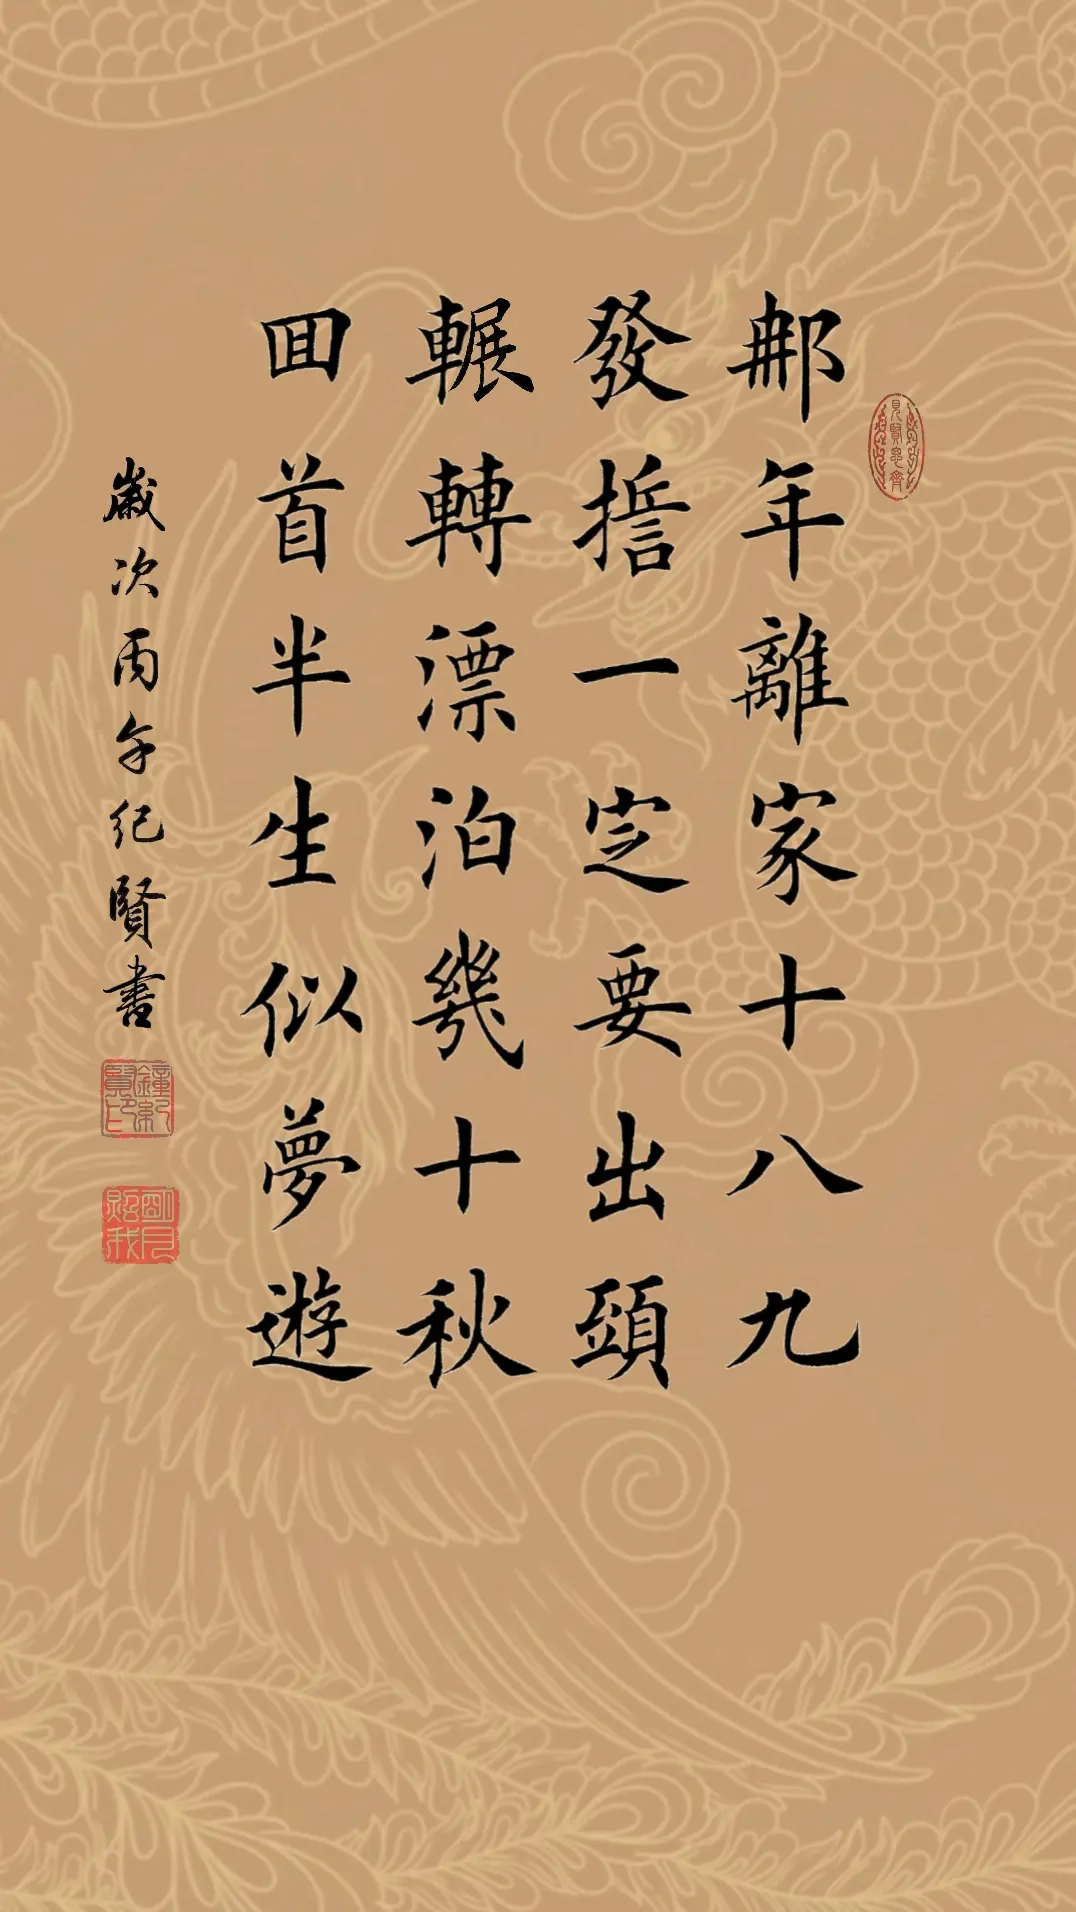 見賢思齊
那年離家十八九
發誓一定要出頭
輾轉漂泊幾十秋
回首半生似夢遊
歲次丙午紀賢書
鐘紀賢印